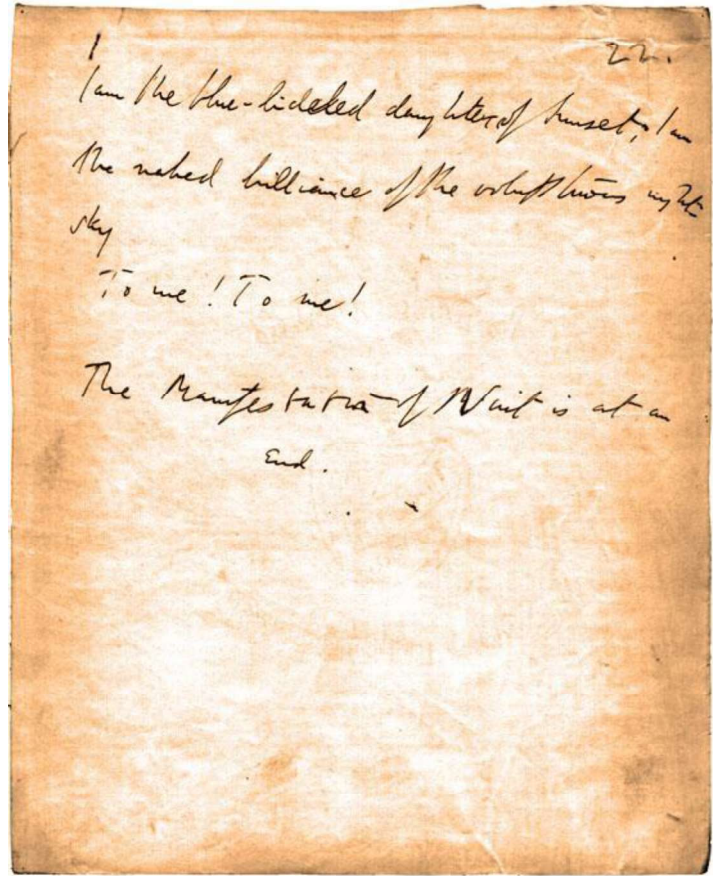 1
22.
I am the blue-lidded daughter of Sunset; I am
the naked brilliance of the voluptuous night
sky
To me! To me!
The Manifestation of Nuit is at an
End.